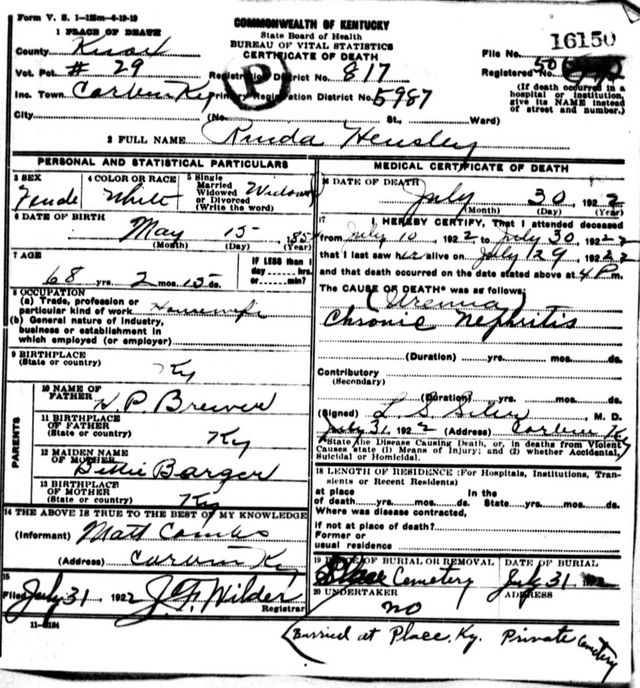 Form V. S. 1-125m-4-19-19
COMMONWEALTH OF KENTUCKY
State Board of Health
BUREAU OF VITAL STATISTICS
CERTIFICATE OF DEATH
1 PLACE OF DEATH
County Knox
Vot. Pct. # 29
Inc. Town Corbin Ky
City
Registration District No. 817
Primary Registration District No. 5987
(No. St., Ward)
File No. 16150
Registered No.
(If death occurred in a
hospital or institution,
give its NAME instead
of street and number.)
P
2 FULL NAME Rinda Hensley
PERSONAL AND STATISTICAL PARTICULARS
3 SEX
Female
4 COLOR OR RACE
White
5 Single
Married
Widowed
or Divorced
(Write the word)
Widow
6 DATE OF BIRTH
May 15
(Month) (Day) (Year)
7 AGE
68 yrs. 2 mos. 15 ds.
IF LESS than 1
day ---- hrs.
or ---- min.?
8 OCCUPATION
(a) Trade, profession or
particular kind of work Housewife
(b) General nature of industry,
business or establishment in
which employed (or employer)
9 BIRTHPLACE
(State or country)
Ky
PARENTS
10 NAME OF
FATHER
H. P. Brewer
11 BIRTHPLACE
OF FATHER
(State or country)
Ky
12 MAIDEN NAME
OF MOTHER
Bettie Barger
13 BIRTHPLACE
OF MOTHER
(State or country)
Ky
14 THE ABOVE IS TRUE TO THE BEST OF MY KNOWLEDGE
(Informant) Matt Combs
(Address) Corbin Ky
15
Filed July 31 1922 J. F. Wilder
Registrar
11-3184
MEDICAL CERTIFICATE OF DEATH
16 DATE OF DEATH
July 30, 1922
(Month) (Day) (Year)
17 I HEREBY CERTIFY, That I attended deceased
from July 10, 1922 to July 30 1922
that I last saw her alive on July 29 1922
and that death occurred on the date stated above at 4 P m.
The CAUSE OF DEATH* was as follows:
(Uremia)
Chronic Nephritis
(Duration) yrs. mos. ds.
Contributory
(Secondary)
(Duration) yrs. mos. ds.
(Signed) M. D.
July 31, 1922 (Address) Corbin Ky
*State the Disease Causing Death, or, in deaths from Violent
Causes state (1) Means of Injury; and (2) whether Accidental,
Suicidal or Homicidal.
18 LENGTH OF RESIDENCE (For Hospitals, Institutions, Tran-
sients or Recent Residents)
at place
of death yrs. mos. ds.
In the
State yrs. mos. ds.
Where was disease contracted,
if not at place of death?
Former or
usual residence
19 PLACE OF BURIAL OR REMOVAL
Place Cemetery
DATE OF BURIAL
July 31 192
20 UNDERTAKER
no
ADDRESS
(Burried at Place, Ky. Private Cemetery